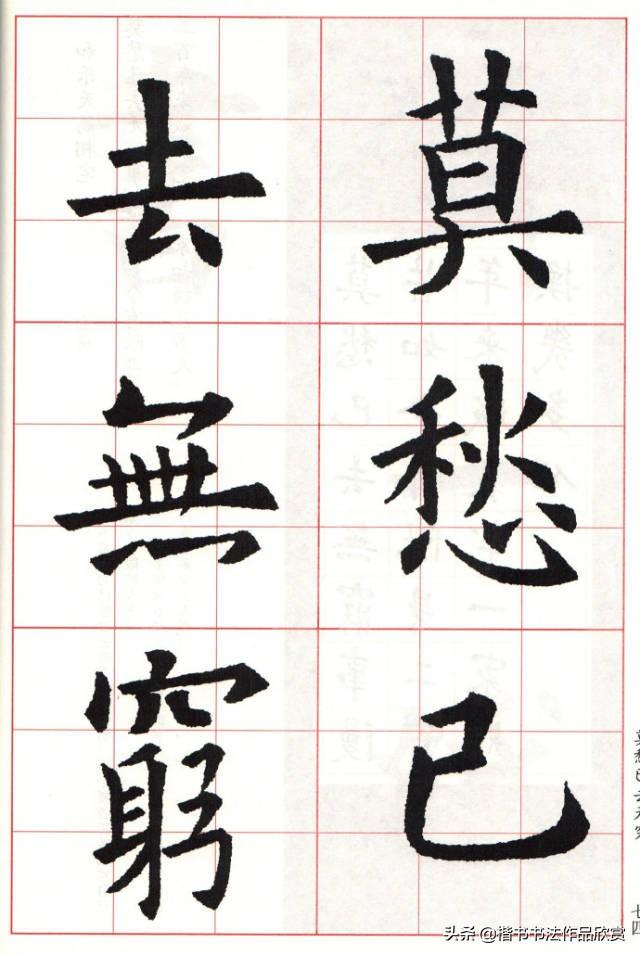 莫愁已
去無窮
莫愁已去无穷
七四
头条 @楷书书法作品欣赏